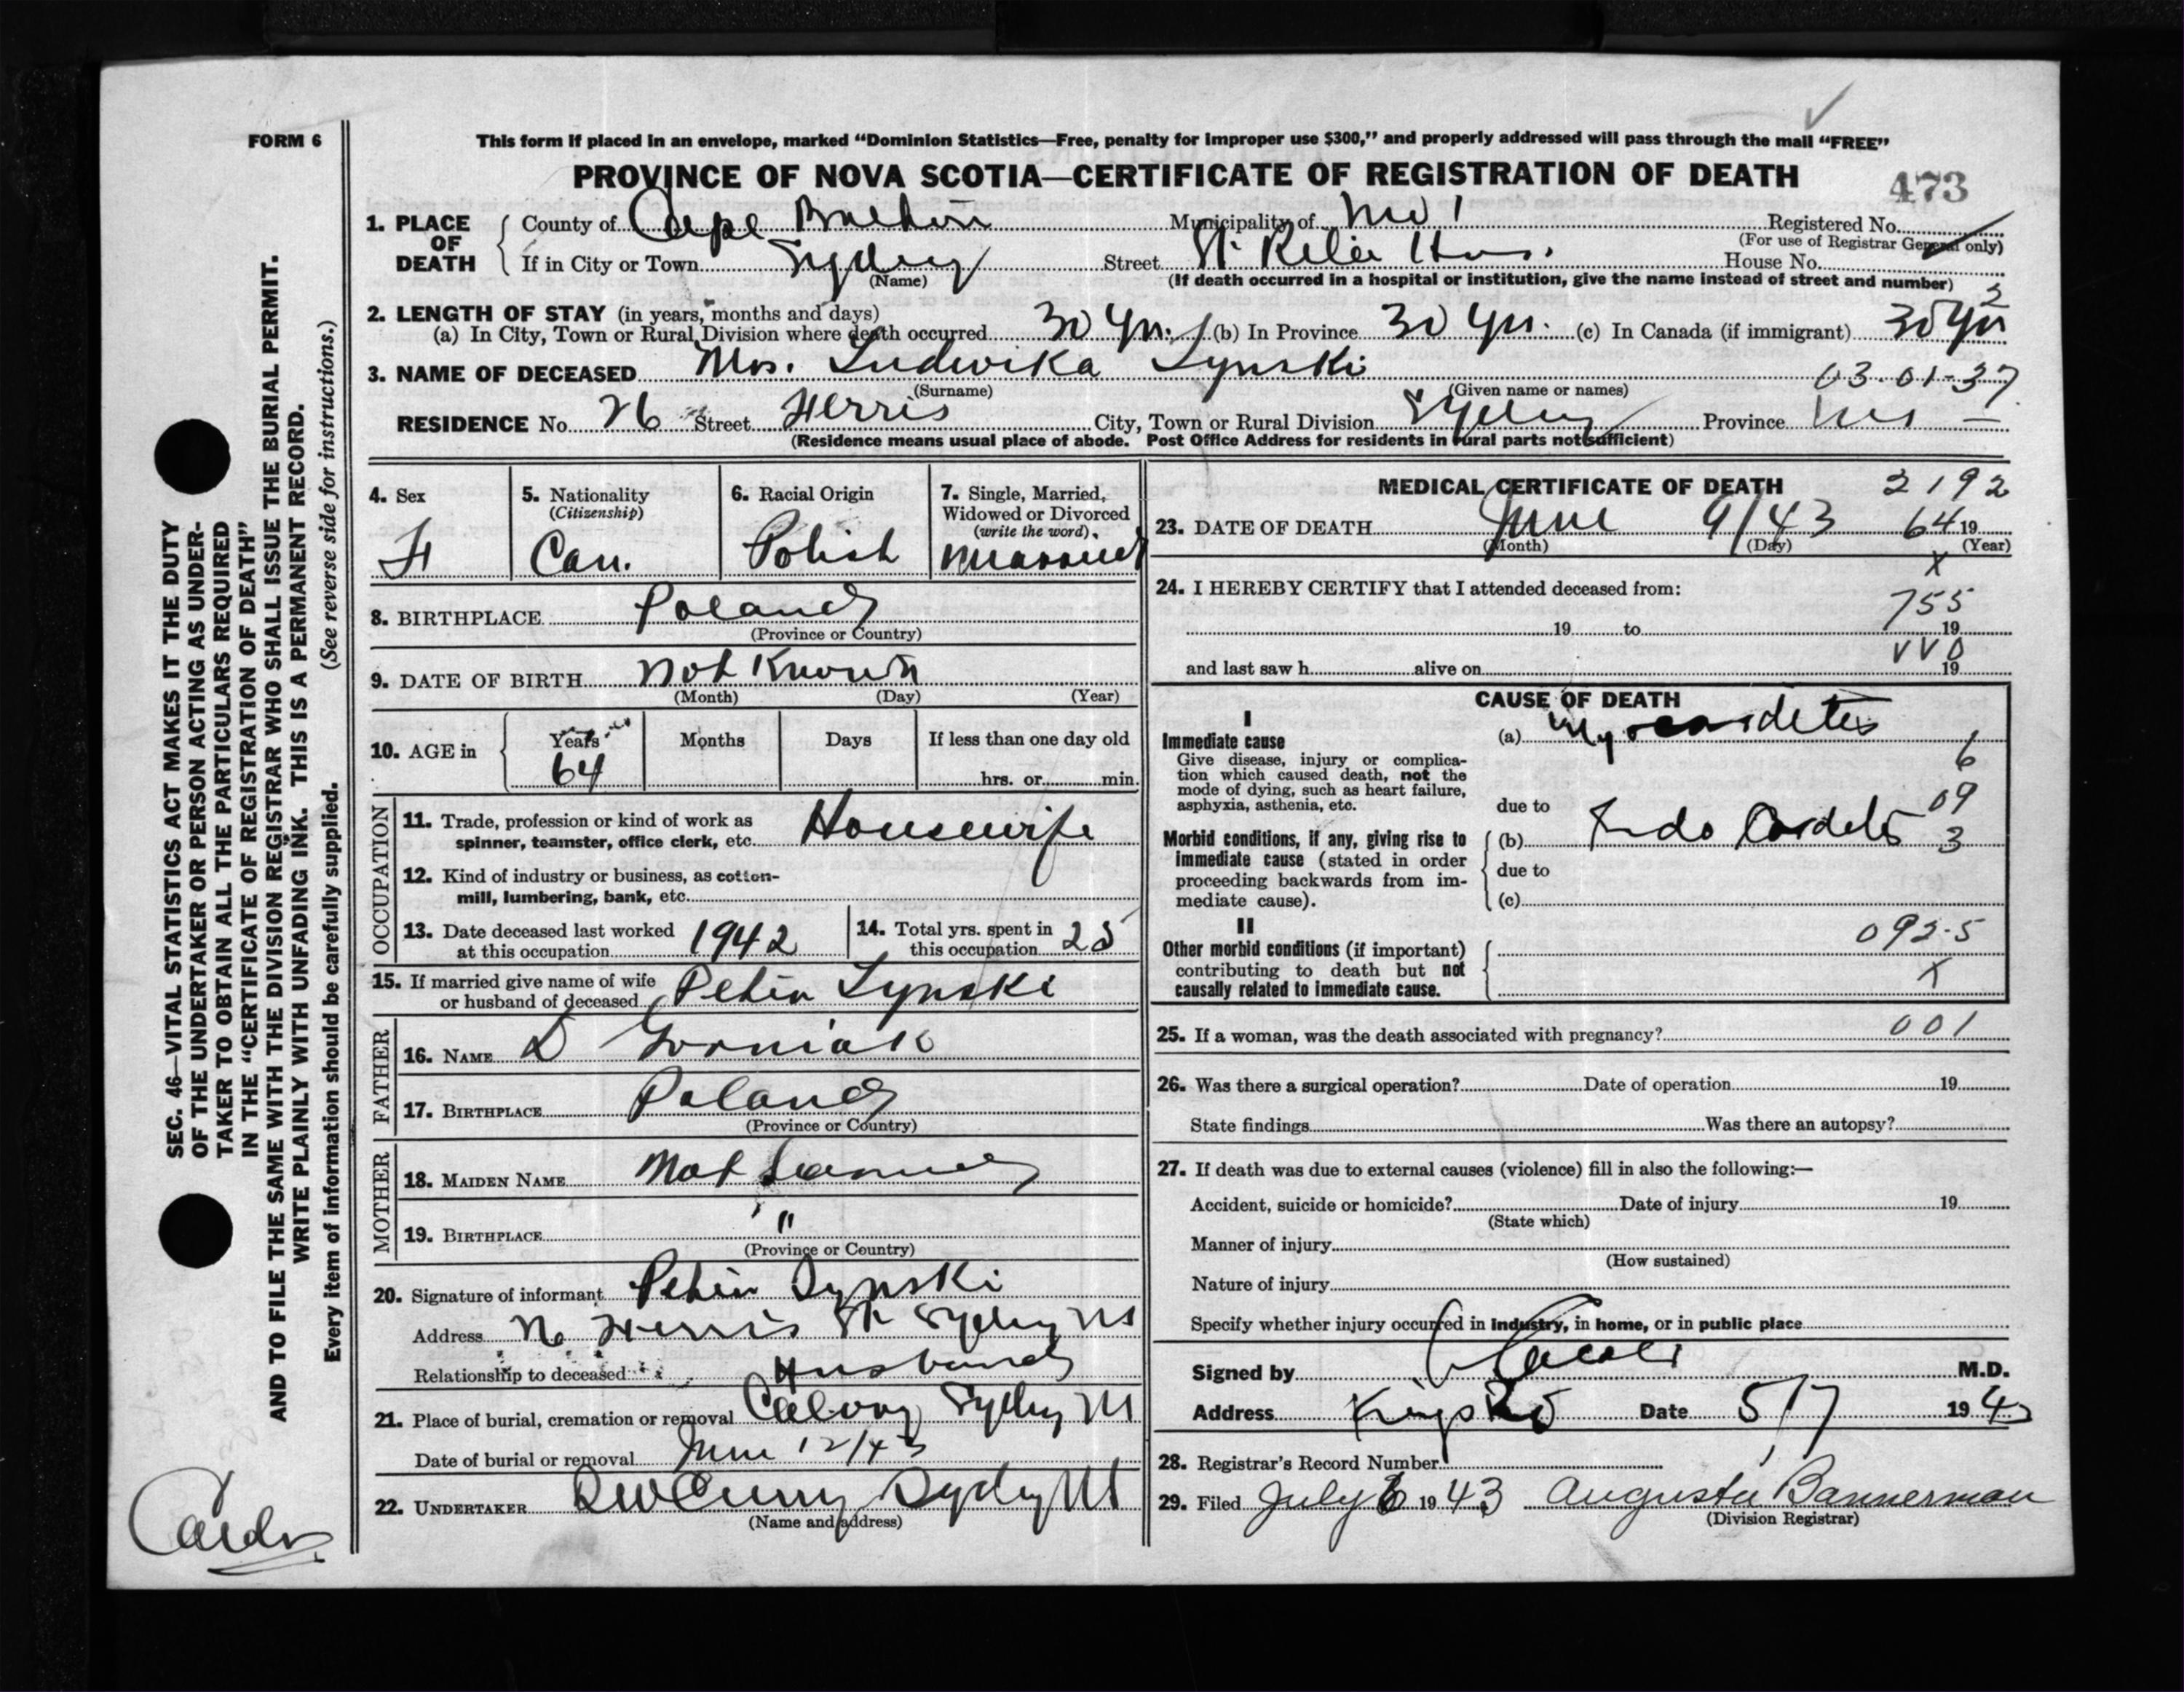 FORM 6
This form if placed in an envelope, marked “Dominion Statistics—Free, penalty for improper use $300,” and properly addressed will pass through the mail “FREE”
PROVINCE OF NOVA SCOTIA—CERTIFICATE OF REGISTRATION OF DEATH
473
1. PLACE OF DEATH
County of Cape Breton Municipality of No 1 Registered No.
(For use of Registrar General only)
If in City or Town Sydney Street St. Hos. House No.
(Name) (If death occurred in a hospital or institution, give the name instead of street and number)
2. LENGTH OF STAY (in years, months and days)
(a) In City, Town or Rural Division where death occurred 30 Yrs. (b) In Province 30 Yrs. (c) In Canada (if immigrant) 30 Yrs
3. NAME OF DECEASED Mrs. Ludwika Lynski 03-01-37
(Surname) (Given name or names)
RESIDENCE No. 26 Street Ferris City, Town or Rural Division Sydney Province NS
(Residence means usual place of abode. Post Office Address for residents in rural parts not sufficient)
4. Sex F
5. Nationality (Citizenship) Can.
6. Racial Origin Polish
7. Single, Married, Widowed or Divorced (write the word) Married
8. BIRTHPLACE Poland
(Province or Country)
9. DATE OF BIRTH Not Known
(Month) (Day) (Year)
10. AGE in Years 64 Months Days If less than one day old
hrs. or min.
OCCUPATION
11. Trade, profession or kind of work as
spinner, teamster, office clerk, etc. Housewife
12. Kind of industry or business, as cotton-
mill, lumbering, bank, etc.
13. Date deceased last worked
at this occupation 1942
14. Total yrs. spent in
this occupation 25
15. If married give name of wife
or husband of deceased Peter Lynski
FATHER
16. NAME D Gorniak
17. BIRTHPLACE Poland
(Province or Country)
MOTHER
18. MAIDEN NAME Not
19. BIRTHPLACE "
(Province or Country)
20. Signature of informant Peter Lynski
Address Ferris St Sydney NS
Relationship to deceased Husband
21. Place of burial, cremation or removal Calvary Sydney NS
Date of burial or removal June 12/43
22. UNDERTAKER Curry Sydney NS
(Name and address)
MEDICAL CERTIFICATE OF DEATH 2192
23. DATE OF DEATH June 9/43 64 19
(Month) (Day) (Year)
X
24. I HEREBY CERTIFY that I attended deceased from:
755
19 to 19
VVO
and last saw h alive on 19
CAUSE OF DEATH
I
Immediate cause (a) Myocardetis
Give disease, injury or complica-
tion which caused death, not the
mode of dying, such as heart failure,
asphyxia, asthenia, etc.
6
due to 09
Morbid conditions, if any, giving rise to (b) Endo Cardetis 3
immediate cause (stated in order due to
proceeding backwards from im-
mediate cause). (c)
II
092-5
Other morbid conditions (if important)
contributing to death but not
causally related to immediate cause. X
25. If a woman, was the death associated with pregnancy? 001
26. Was there a surgical operation? Date of operation 19
State findings Was there an autopsy?
27. If death was due to external causes (violence) fill in also the following:—
Accident, suicide or homicide? Date of injury 19
(State which)
Manner of injury
(How sustained)
Nature of injury
Specify whether injury occurred in industry, in home, or in public place
Signed by M.D.
Address Kings Rd Date 5/7 1943
28. Registrar's Record Number
29. Filed July 6 1943 Augusta Bannerman
(Division Registrar)
SEC. 46—VITAL STATISTICS ACT MAKES IT THE DUTY
OF THE UNDERTAKER OR PERSON ACTING AS UNDER-
TAKER TO OBTAIN ALL THE PARTICULARS REQUIRED
IN THE “CERTIFICATE OF REGISTRATION OF DEATH”
AND TO FILE THE SAME WITH THE DIVISION REGISTRAR WHO SHALL ISSUE THE BURIAL PERMIT.
WRITE PLAINLY WITH UNFADING INK. THIS IS A PERMANENT RECORD.
Every item of information should be carefully supplied. (See reverse side for instructions.)